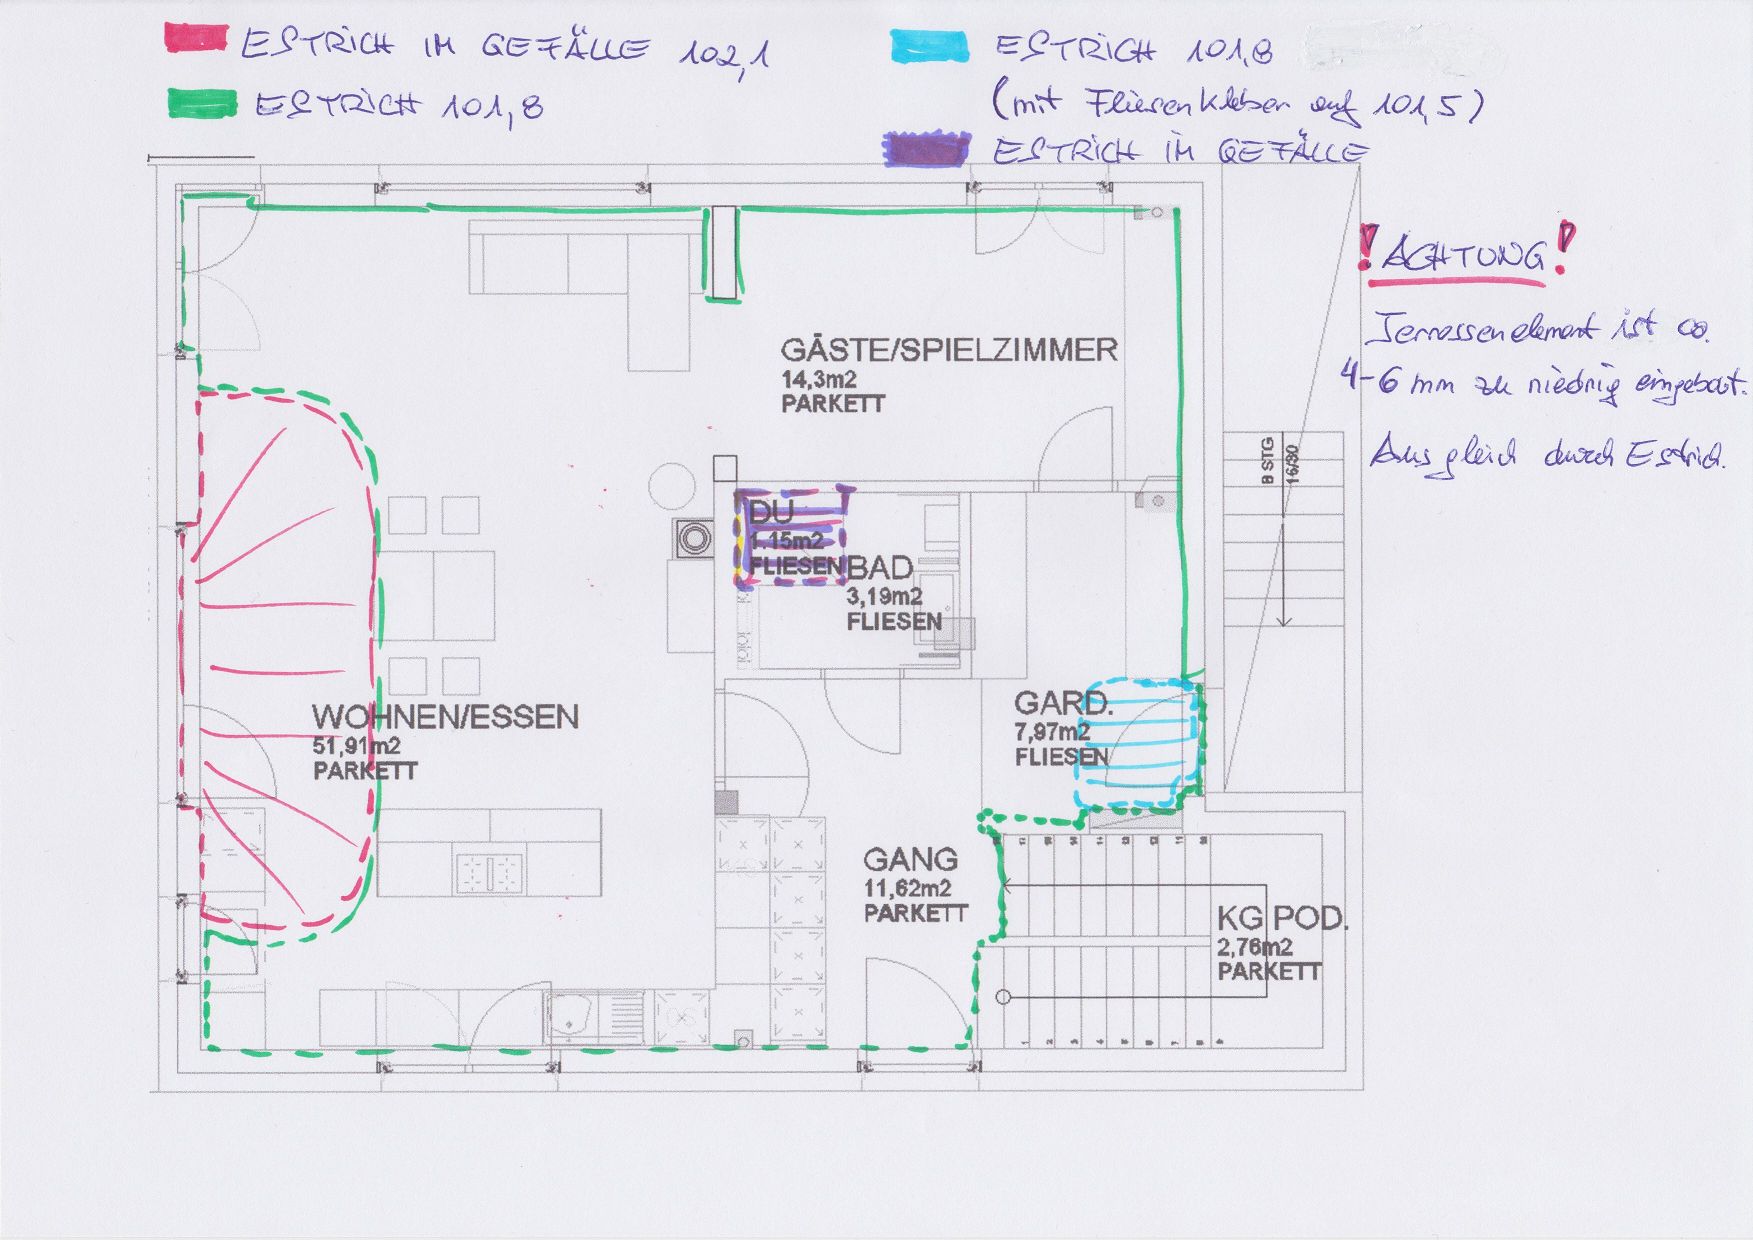 ESTRICH IM GEFÄLLE 102,1
ESTRICH 101,8
ESTRICH 101,8
(mit Fliesenkleber auf 101,5)
ESTRICH IM GEFÄLLE
! ACHTUNG !
Terrassenelement ist ca.
4-6 mm zu niedrig eingebaut.
Ausgleich durch Estrich.
GÄSTE/SPIELZIMMER
14,3m2
PARKETT
8 STG
16/30
DU
1.15m2
FLIESEN
BAD
3,19m2
FLIESEN
WOHNEN/ESSEN
51,91m2
PARKETT
GARD.
7,97m2
FLIESEN
GANG
11,62m2
PARKETT
KG POD.
2,76m2
PARKETT